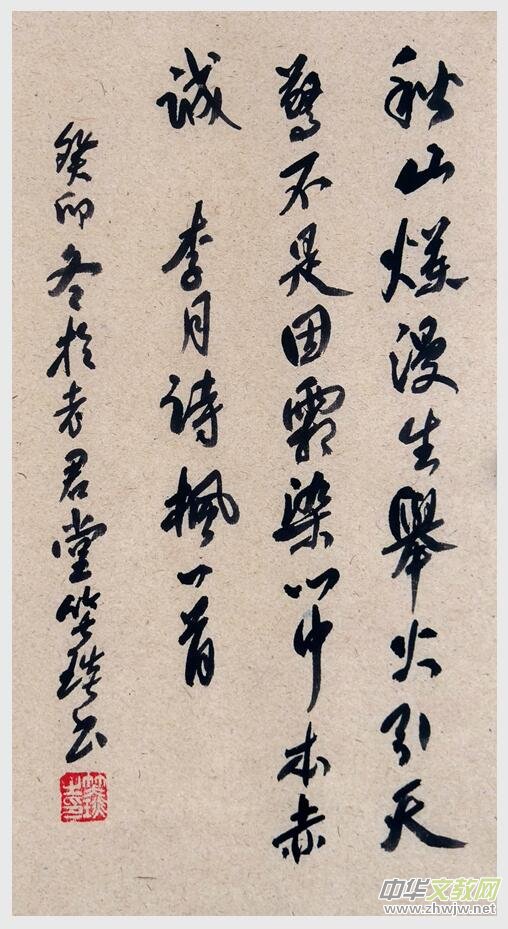 秋山爛漫生舉火引天
驚不是因霜染心中本赤
诚 李月诗枫一首
癸卯冬於老君堂书
中华文教网
www.zhwjw.net